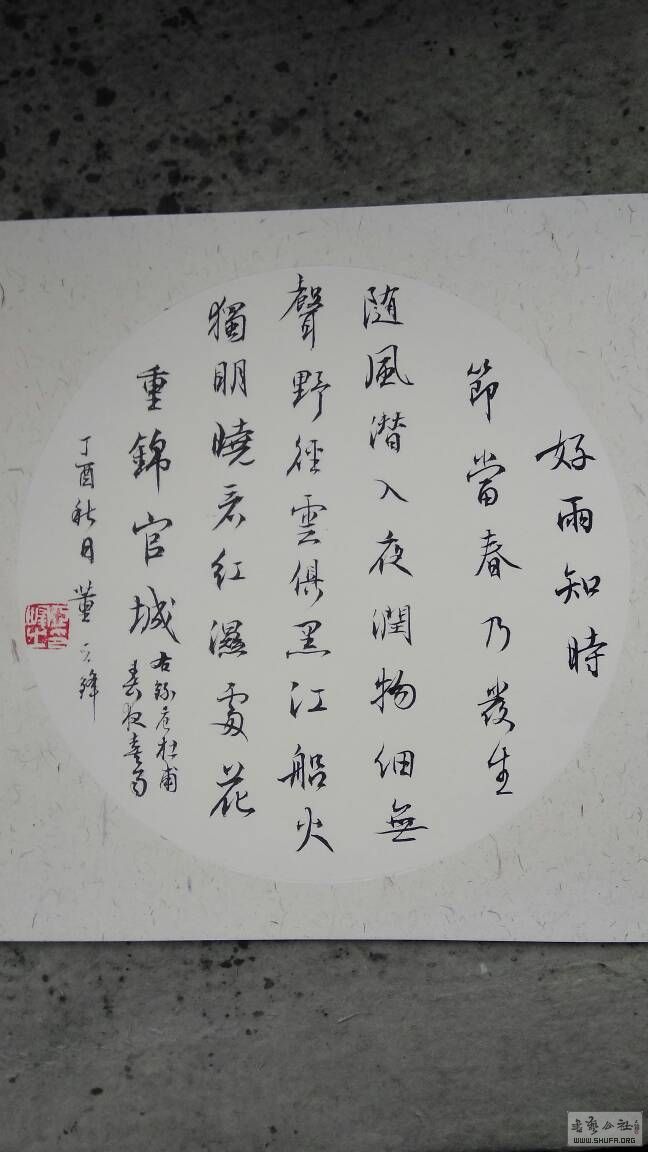 好雨知時
節當春乃發生
随風潜入夜潤物細無
聲野徑雲俱黑江船火
獨明曉看紅濕處花
重錦官城
右錄唐杜甫
春夜喜雨
丁酉秋月董 鋒
書藝公社
WWW.SHUFA.ORG